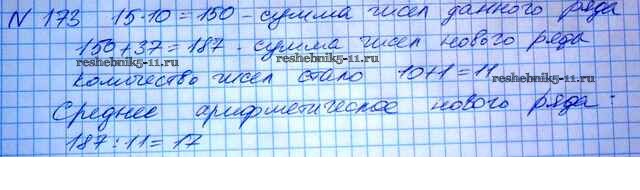 N 173 15·10=150 - сумма чисел данного ряда
150+37=187 - сумма чисел нового ряда
reshebnik5-11.ru reshebnik5-11.ru
количество чисел стало 10+1=11
reshebnik5-11.ru
Среднее арифметическое нового ряда:
reshebnik5-11.ru reshebnik5-11.ru
187:11=17